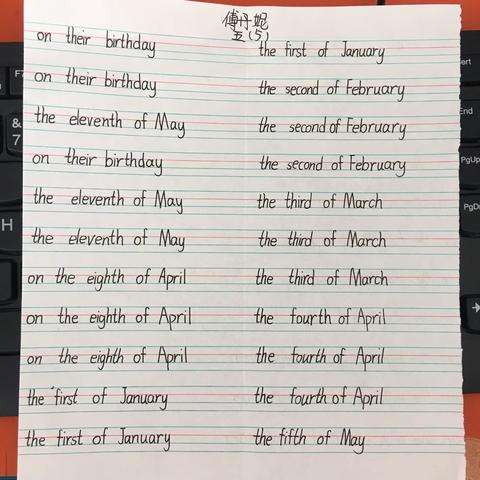 傅丹妮
五(5)
on their birthday
on their birthday
the eleventh of May
on their birthday
the eleventh of May
the eleventh of May
on the eighth of April
on the eighth of April
on the eighth of April
the first of January
the first of January
the first of January
the second of February
the second of February
the second of February
the third of March
the third of March
the third of March
the fourth of April
the fourth of April
the fourth of April
the fifth of May
F7
&
7
H
End
PgUp